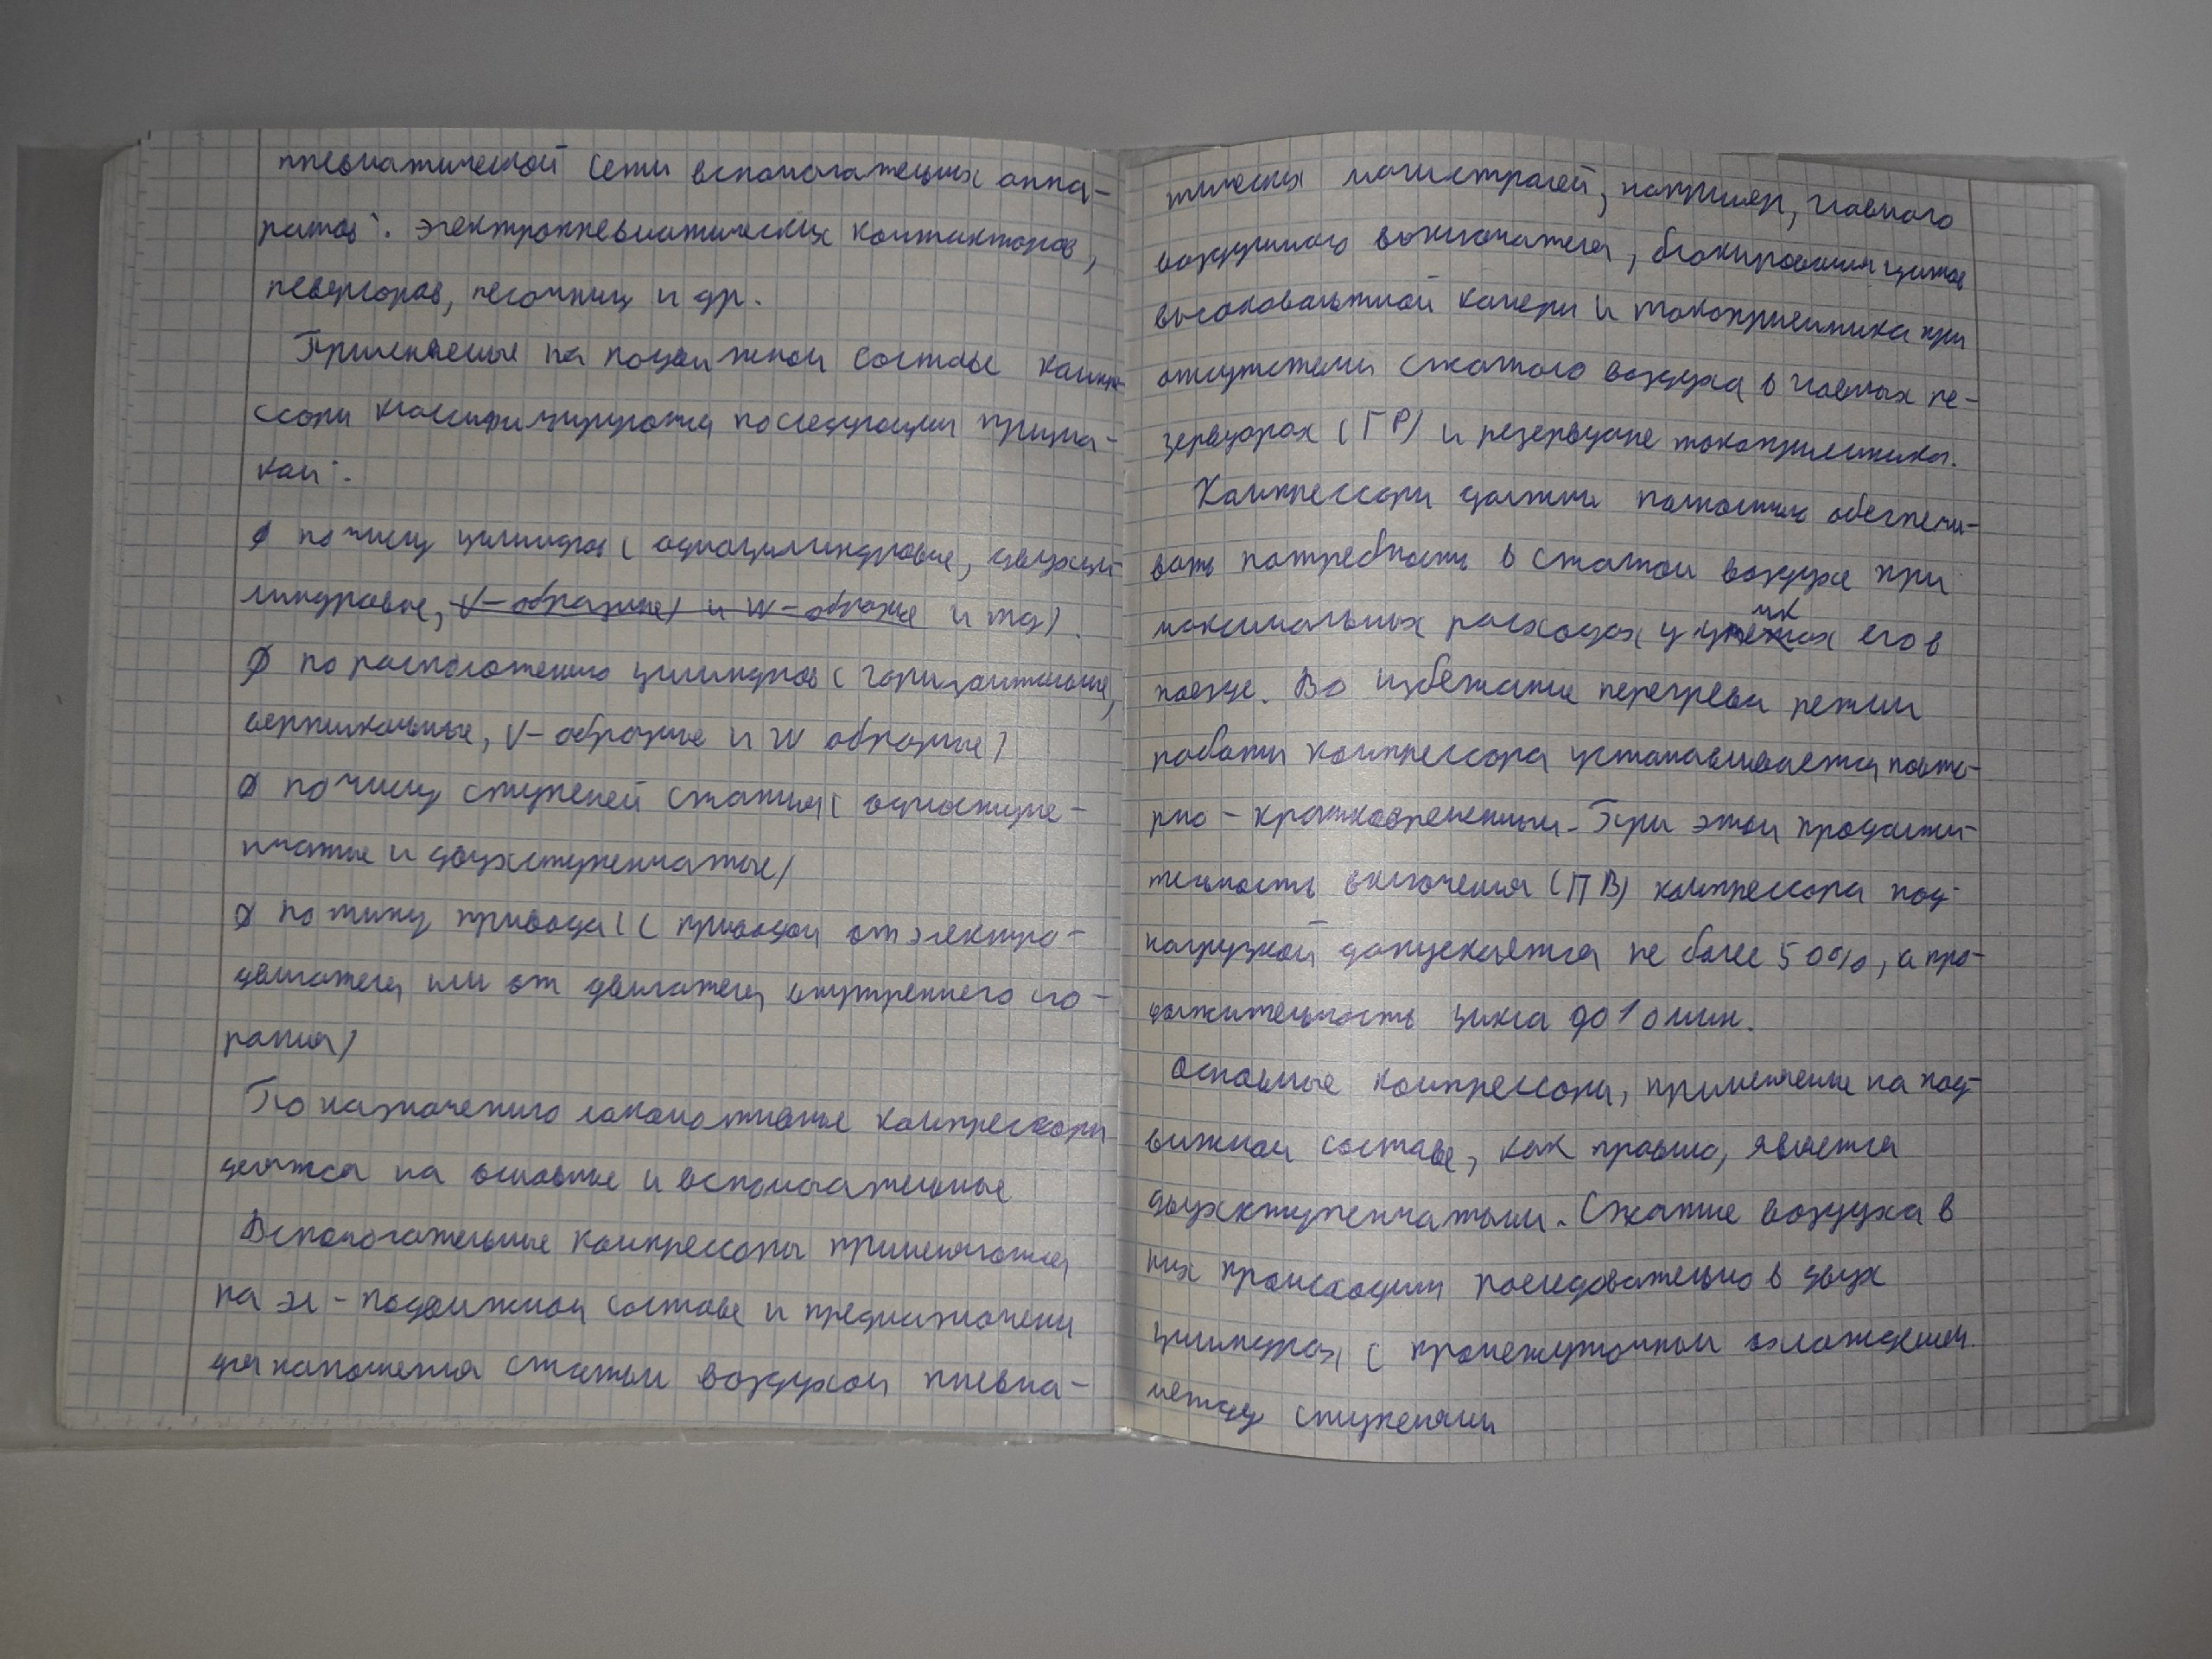 пневматической сети вспомогательных аппа-
ратов: электропневматических контакторов,
реверсоров, песочниц и др.
Применяемые на подвижном составе компре-
ссоры классифицируются последующим призна-
кам:
по числу цилиндров (одноцилиндровые, двухци-
линдровые, V-образные) и W-образные и тд).
по расположению цилиндров (горизонтальные,
вертикальные, V-образные и W образные)
по числу ступеней сжатия (одноступе-
нчатые и двухступенчатые)
по типу привода (с приводом от электро-
двигателя или от двигателя внутреннего сго-
рания)
По назначению локомотивные компрессоры
делятся на основные и вспомогательные
Вспомогательные компрессоры применяются
на эл-подвижном составе и предназначены
для наполнения сжатым воздухом пневма-
тических магистралей, например, главного
воздушного выключателя, блокирования щитов
высоковольтной камеры и токоприемника при
отсутствии сжатого воздуха в главных ре-
зервуарах (ГР) и резервуаре токоприемника.
Компрессоры должны полностью обеспечи-
вать потребность в сжатом воздухе при
максимальных расходах и утечках его в
поезде. Во избежание перегрева режим
работы компрессора устанавливается повто-
рно-кратковременным. При этом продолжи-
тельность включения (ПВ) компрессора под
нагрузкой допускается не более 50%, а про-
должительность цикла до 10 мин.
Основные компрессоры, применяемые на под-
вижном составе, как правило, является
двухступенчатыми. Сжатие воздуха в
них происходит последовательно в двух
цилиндрах с промежуточным охлаждением
между ступенями